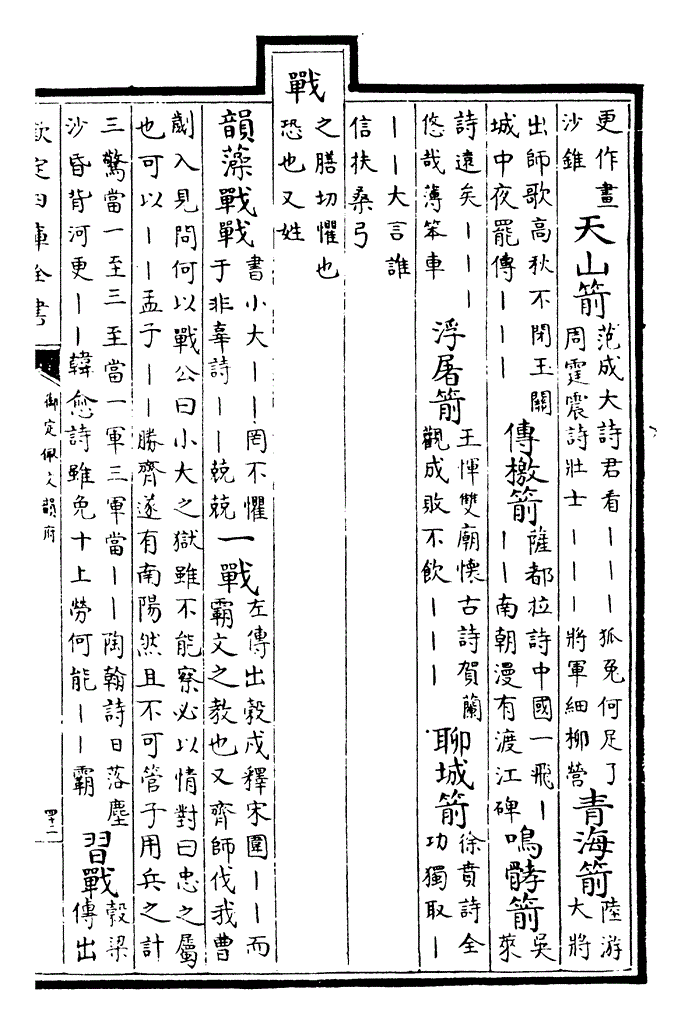 更作畫
沙錐
天山箭
范成大詩君看丨丨丨狐兔何足了
周霆震詩壯士丨丨丨將軍細柳營
青海箭
陸游
大將
出師歌高秋不閉玉關
城中夜罷傳丨丨丨
傳檄箭
薩都拉詩中國一飛丨
丨丨南朝漫有渡江碑
鳴髇箭
吳
萊
詩遠矣丨丨丨
悠哉薄笨車
浮屠箭
王惲雙廟懷古詩賀蘭
觀成敗不飲丨丨丨
聊城箭
徐賁詩全
功獨取丨
丨丨大言誰
信扶桑弓
戰
之膳切懼也
恐也又姓
韻藻戰戰
書小大丨丨罔不懼
于非辜詩丨丨兢兢
一戰
左傳出穀戍釋宋圍丨丨而
霸文之教也又齊師伐我曹
劌入見問何以戰公曰小大之獄雖不能察必以情對曰忠之屬
也可以丨丨孟子丨丨勝齊遂有南陽然且不可管子用兵之計
三驚當一至三至當一軍三軍當丨丨陶翰詩日落塵
沙昏背河更丨丨韓愈詩雖免十上勞何能丨丨霸
習戰
穀梁
傳出
欽定四庫全書
御定佩文韻府
四十二